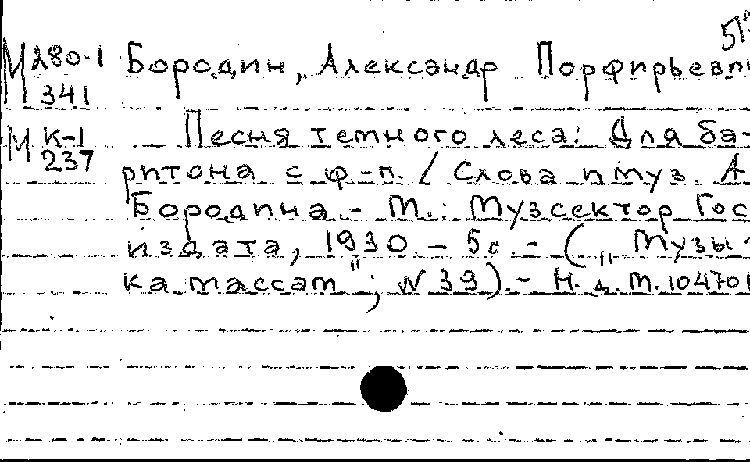 51
М А80-1 Бородин, Александр Порфирьеви
341
М К-1 Песня темного леса: Для ба-
237 ритона с ф-п. / Слова и муз. А.
Бородина. - М.: Музсектор Гос
издата, 1930 - 5с. - („Музы-
ка массам"; N 39). - Н. д. М. 104701